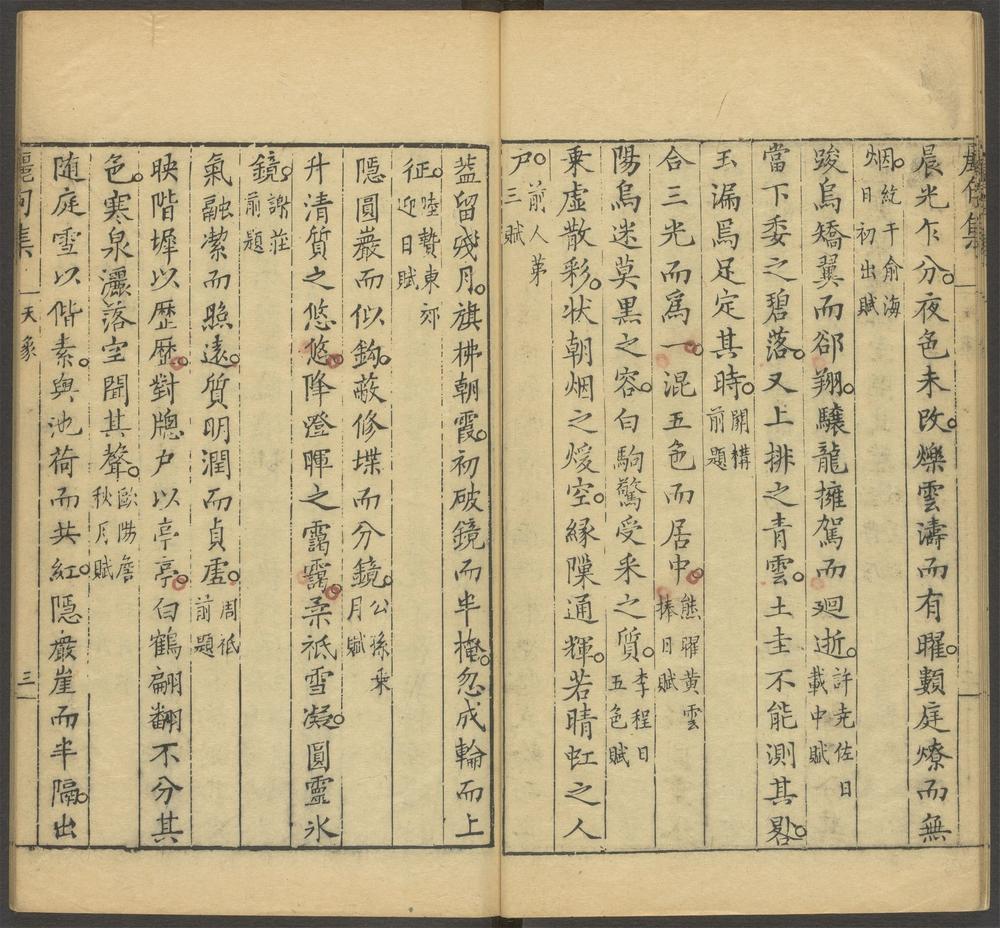 麗句集
晨光乍分。夜色未改。爍雲濤而有曜。類庭燎而無
烟。紇干俞海
日初出賦
踆烏矯翼而郤翔。驤龍擁駕而廻逝。許尭佐日
載中賦
當下委之碧落。又上排之青雲。土圭不能測其晷。
玉漏焉足定其時。關構
前題
合三光而爲一。混五色而居中。熊曜黄雲
捧日賦
陽烏迷莫黒之容。白駒驚受采之質。李程日
五色賦
乗虛散彩。状朝烟之煖空。緣隟通輝。若晴虹之人
戸。前人第
三賦
蓋留殘月。旗拂朝霞。初破鏡而半掩。忽成輪而上
征。陸贄東郊
迎日賦
隱圓巖而似鈎。蔽修堞而分鏡。公孫乗
月賦
升清質之悠悠。降澄暉之靄靄。柔祇雪凝。圓靈氷
鏡。謝莊
前題
氣融潔而照遠。質明潤而貞虛。周祇
前題
映階墀以歴歴。對牕戸以亭亭。白鶴翩翻不分其
色。寒泉灑落空聞其聲。歐陽詹
秋月賦
随庭雪以偕素。與池荷而共紅。隱巖崖而半隔。出
麗句集 天象 三